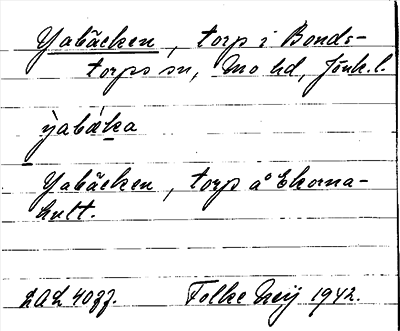 Yabäcken, torp i Bonds-
torps sn, Mo hd, Jönk. l.
ỳabáka
Yabäcken, torp å Ekorna-
hult.
LAL 4077.
Folke Heij 1942.